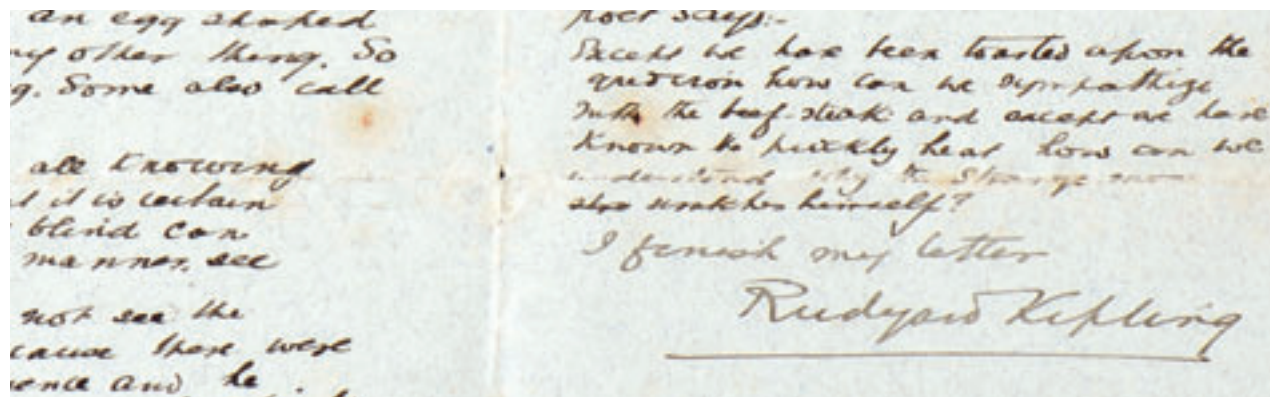 an egg shaped
other thing. So
Some also call
all knowing
it is certain
blind can
manner. see
not see the
there were
and he
poet says:-
Except we have been toasted upon the
how can we sympathize
with the beef-steak and except we have
known the prickly heat how can we
understand why the Strange
scratches himself?
I finish my letter
Rudyard Kipling